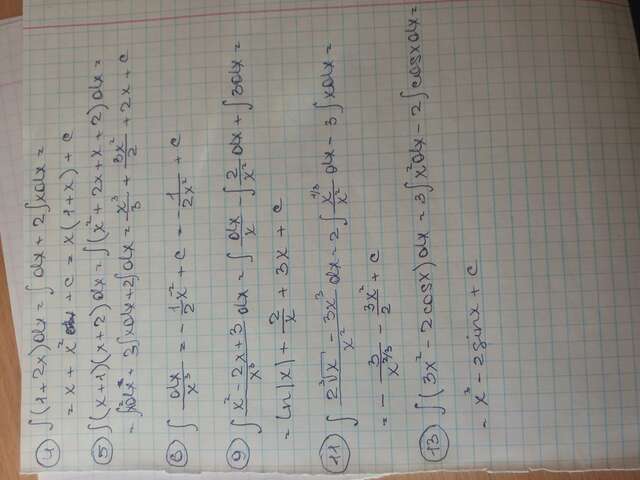 ④ ∫(1+2x)dx = ∫dx + 2∫xdx =
= x + x² + c = x(1+x) + c
⑤ ∫(x+1)(x+2)dx = ∫(x²+2x+x+2)dx =
= ∫x²dx + 3∫xdx + 2∫dx = x³/3 + 3x²/2 + 2x + c
⑧ ∫dx/x³ = -1/2 x⁻² + c = -1/2x² + c
⑨ ∫(x²-2x+3)/x³ dx = ∫dx/x - ∫2/x² dx + ∫3dx =
= ln|x| + 2/x + 3x + c
⑪ ∫(2∛x - 3x³)/x² dx = 2∫x^(1/3)/x² dx - 3∫xdx =
= -3/x^(2/3) - 3x²/2 + c
⑬ ∫(3x²-2cosx)dx = 3∫x²dx - 2∫cosxdx =
= x³ - 2sinx + c